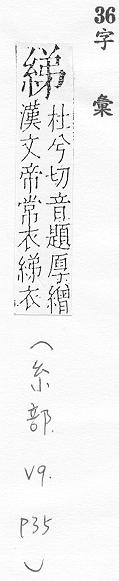 36字彙
綈
杜兮切音題厚繒
漢文帝常衣綈衣
(糸部.
V9.
P35
)